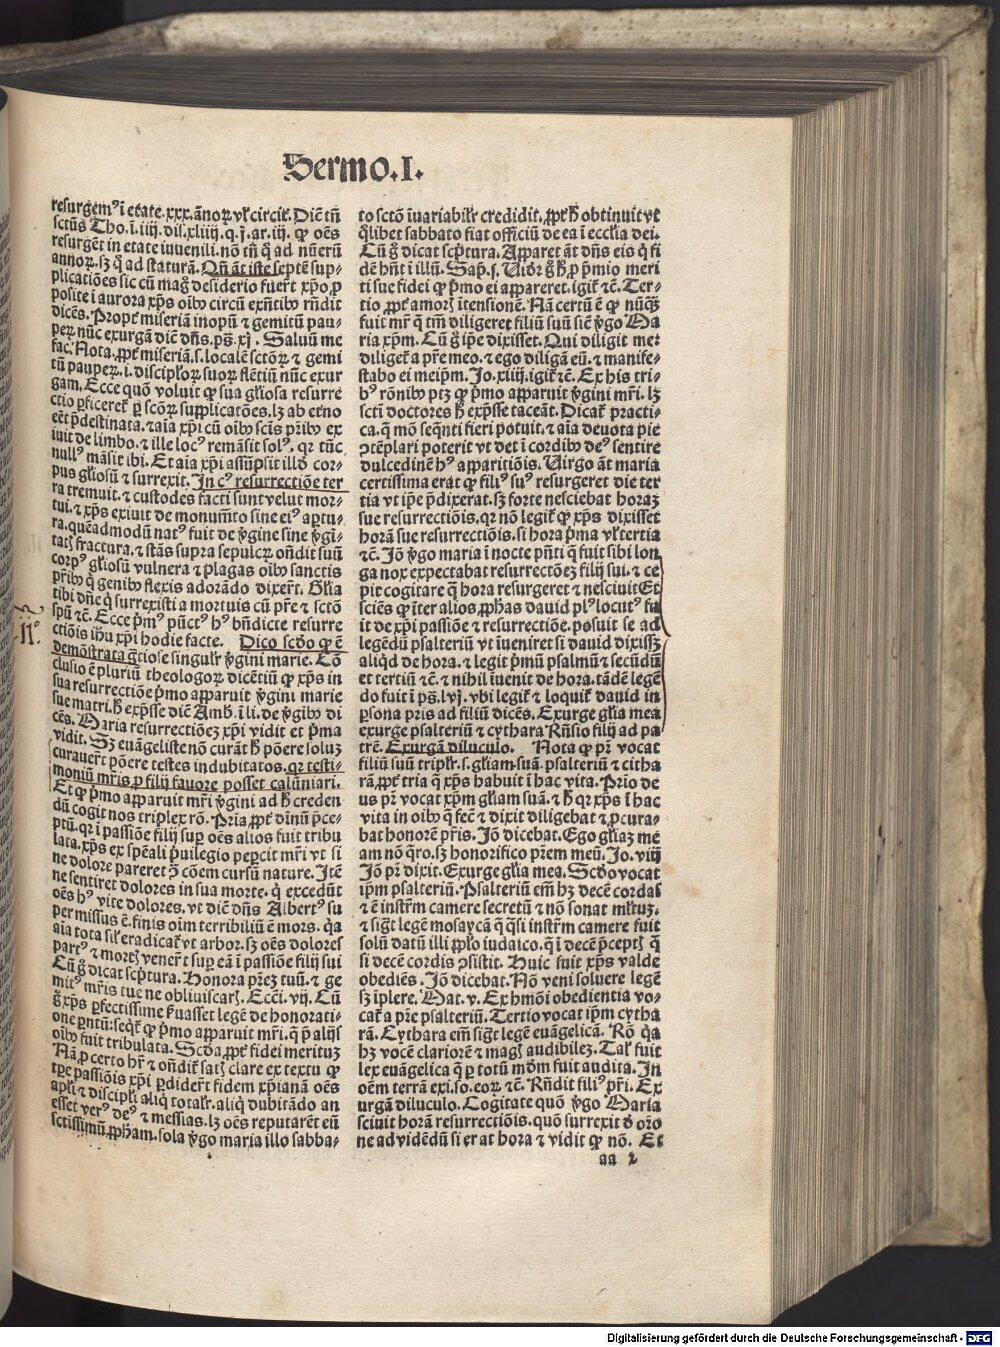 Sermo.I.
resurgemꝰ ī etate.xxx.ānoꝝ vł circit̄.Diē tñ
sctūs Tho.ī.iiij.dis.xliiij.q.j.ar.iij. ꝙ oēs
resurgēt in etate iuuenili.nō tñ q̄ ad nūerū
annoꝝ.sꝫ q̄ ad staturā.Qñ āt iste septē sup-
plicatiōes sic cū mag̊ desiderio fuer̄t xp̄o ꝓ
posite ī aurora xp̄s oībꝰ circū exñtibꝰ rñdit
dicēs.Propt̄ miseriā inopū ⁊ gemitū pau-
peꝝ nūc exurgā diē dñs.ps̄.xj. Saluū me
fac.Nota.ꝓpt̄ miseriā.s.localē sctōꝝ ⁊ gemi
tū paupeꝝ.i.discipłoꝝ suoꝝ flētiū nūc exur
gam.Ecce quō voluit ꝙ sua gl̄iosa resurre
ctio ꝑficeret̄ ꝑ scōꝝ supplicatōes.lꝫ ab etno
eēt p̄destinata.⁊ aīa xp̄i cū oībꝰ scīs pr̄ibꝰ ex
iuit de limbo.⁊ ille locꝰ remāsit solꝰ. qꝛ tūc
nullꝰ māsit ibi.Et aīa xp̄i assūpsit illd̄ cor-
pus gl̄iosū ⁊ surrexit.In cꝰ resurrectiōe ter
ra tremuit.⁊ custodes facti sunt velut mor-
tui.⁊ xp̄s exiuit de monumēto sine eiꝰ aꝑtu-
ra.quēadmodū natꝰ fuit de v̄gine sine v̄gi-
tatꝭ fractura.⁊ stās supra sepulcꝝ oñdit suū
corpꝰ gl̄iosū vulnera ⁊ plagas oībꝰ sanctis
pr̄ibꝰ q̄ genibꝰ flexis adorādo dixer̄t. Gl̄ia
tibi dñe q̄ surrexisti a mortuis cū pr̄e ⁊ sctō
spū ⁊c̄.Ecce p̄mꝰ pūctꝰ hꝰ bñdicte resurre
ctiōis ihū xp̄i hodie facte. Dico scd̄o ꝙ ē
demōstrata ḡtiose singulr̄ v̄gini marie. Cō
clusio ē pluriū theologoꝝ dicētiū ꝙ xp̄s in
sua resurrectiōe p̄mo apparuit v̄gini marie
sue matri.h̄ exp̄sse diē Amb̄.ī li.de v̄gībꝰ di
cēs.Maria resurrectiōeꝫ xp̄i vidit et p̄ma
vidit.Sꝫ euāgeliste nō curāt h̄ pōere soluꝫ
curauer̄t pōere testes indubitatos.qꝛ testi-
moniū mr̄is ꝑ filij fauore posset calūniari.
Et ꝙ p̄mo apparuit mr̄i v̄gini ad h̄ creden
dū cogit nos triplex rō.Pria ꝓpt̄ dinū p̄ce-
ptū.qꝛ ī passiōe filij sup oēs alios fuit tribu
lata.xp̄s ex spēali p̄uilegio peꝑcit mr̄i vt si
ne dolore pareret ↄ̄ cōem cursū nature.Itē
ne sentiret dolores in sua morte.q̄ excedūt
oēs hꝰ vite dolores.vt diē dñs Albertꝰ su
per missus ē.finis oīm terribiliū ē mors.q̄a
aīa tota sil̄ eradicat̄ vt arbor.sꝫ oēs dolores
partꝰ ⁊ mortꝭ vener̄t suꝑ eā ī passiōe filij sui
Cū g̊ dicat scp̄tura.Honora pr̄eꝫ tuū.⁊ ge
mitꝰ mr̄is tue ne obliuiscarꝭ.Ecci.vij. Cū
g̊ xp̄s ꝑfectissime ẜuasset legē de honorati-
one pntū:seq̄t̄ ꝙ p̄mo apparuit mr̄i.q̄ p̄ alijs
oībꝰ fuit tribulata.Scd̄a ꝓpt̄ fidei merituꝫ
Nā ꝓ certo hr̄ ⁊ oñdit̄ satꝭ clare ex textu ꝙ
tꝑe passiōis xp̄i ꝑdider̄t fidem xp̄ianā oēs
apłi ⁊ discipłi aliq̄ totalr̄.aliq̄ dubitādo an
esset verꝰ deꝰ ⁊ messias.lꝫ oēs reputarēt eū
sctissimū ꝓpham.sola v̄go maria illo sabba-
to sctō īuariabilr̄ credidit.ꝓpt̄ h̄ obtinuit vt
q̄libet sabbato fiat officiū de ea ī ecclīa dei.
Cū g̊ dicat scp̄tura.Apparet āt dñs eis q̄ fi
dē hñt ī illū. Sap̄.j. Vidr̄ g̊ h̄ ꝓ p̄mio meri
ti sue fidei ꝙ p̄mo ei appareret.igit̄ ⁊c̄.Ter-
tio ꝓpt̄ amorꝭ ītensionē.Nā certū ē ꝙ nūqꝫ
fuit mr̄ q̄ tm̄ diligeret filiū suū sic̄ v̄go Ma
ria xp̄m.Cū g̊ ip̄e dixisset.Qui diligit me:
diliget̄ a pr̄e meo.⁊ ego diligā eū.⁊ manife-
stabo ei meip̄m.Jo.xliij.igit̄ ⁊c̄.Ex his tri-
bꝰ rōnibꝰ ptꝫ ꝙ p̄mo apparuit v̄gini mr̄i.lꝫ
sctī doctores h̄ exp̄sse taceāt.Dicat̄ practi-
ca.q̄ mō seq̄nti fieri potuit.⁊ aīa deuota pie
ↄ̄tēplari poterit vt det ī cordibꝰ deꝰ sentire
dulcedinē hꝰ apparitiōis.Virgo āt maria
certissima erat ꝙ filiꝰ suꝰ resurgeret die ter
tia vt ip̄e p̄dixerat.sꝫ forte nesciebat horaꝫ
sue resurrectiōis.qꝛ nō legit̄ ꝙ xp̄s dixisset
horā sue resurrectiōis.si hora p̄ma vł tertia
⁊c̄.Jō v̄go maria ī nocte pñti q̄ fuit sibi lon
ga nox expectabat resurrectōeꝫ filij sui.⁊ ce
pit cogitare q̄ hora resurgeret ⁊ nesciuit Et
sciēs ꝙ īter alios ꝓphas dauid plꝰ locutꝰ fu
it de xp̄i passiōe ⁊ resurrectiōe.posuit se ad
legēdū psalteriū vt īueniret si dauid dixissꝫ
aliqd̄ de hora.⁊ legit p̄mū psalmū ⁊ secūdū
et tertiū ⁊c̄.⁊ nihil īuenit de hora.tādē legē
do fuit ī ps̄.lvj.vbi legit̄ ⁊ loquit̄ dauid in
ꝑsona pris ad filiū dicēs.Exurge gl̄ia mea
exurge psalteriū ⁊ cythara Rñsio filij ad pa
trē.Exurgā diluculo. Nota ꝙ pr̄ vocat
filiū suū triplr̄.s.gl̄iam.suā.psalteriū ⁊ citha
rā.ꝓpt̄ tria q̄ xp̄s habuit ī hac vita.Prio de
us pr̄ vocat xp̄m gl̄iam suā.⁊ h̄ qꝛ xp̄s ī hac
vita in oībꝰ q̄ fecit̄ ⁊ dixit diligebat ⁊ ꝓcura-
bat honorē pr̄is.Jō dicebat.Ego gl̄iaꝫ me
am nō q̄ro.sꝫ honorifico pr̄em meū.Jo.viij
Jō pr̄ dixit.Exurge gl̄ia mea.Scd̄o vocat
ip̄m psalteriū.Psalteriū em̄ hꝫ decē cordas
⁊ ē instrm̄ camere secretū ⁊ nō sonat ml̄tuꝫ.
⁊ siḡt legē mosaycā q̄ q̄si instrm̄ camere fuit
solū datū illi ꝓplo iudaico.q̄ ī decē p̄ceptꝭ q̄
si decē cordis ↄ̄sistit. Huic fuit xp̄s valde
obediēs.Jō dicebat.Nō veni soluere legē
sꝫ īplere.Mat.v.Ex hmōi obedientia vo-
cat̄ a pr̄e psalteriū.Tertio vocat ip̄m cytha
rā.Cythara em̄ siḡt legē euāgelicā. Rō q̄a
hꝫ vocē clariorē ⁊ magꝭ audibilez.Tal̄ fuit
lex euāgelica q̄ ꝑ totū mūdm̄ fuit audita.In
oēm terrā exi.so.eoꝝ ⁊c̄.Rñdit filiꝰ pr̄i. Ex
urgā diluculo.Cogitate quō v̄go Maria
sciuit horā resurrectiōis.quō surrexit d̄ oro
ne ad vidēdū si erat hora ⁊ vidit ꝙ nō. Et
aa 2
IIꝰ.
Digitalisierung gefördert durch die Deutsche Forschungsgemeinschaft - DFG